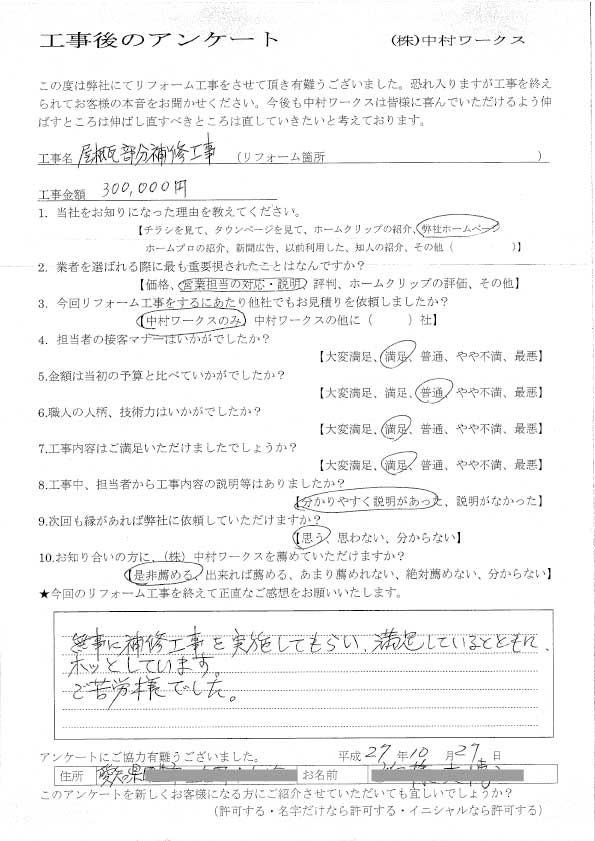 工事後のアンケート (株)中村ワークス
この度は弊社にてリフォーム工事をさせて頂き有難うございました。恐れ入りますが工事を終え
られてお客様の本音をお聞かせください。今後も中村ワークスは皆様に喜んでいただけるよう伸
ばすところは伸ばし直すべきところは直していきたいと考えております。
工事名 屋根瓦部分補修工事 (リフォーム箇所 )
工事金額 300,000円
1. 当社をお知りになった理由を教えてください。
【チラシを見て、タウンページを見て、ホームクリップの紹介、弊社ホームページ
ホームプロの紹介、新聞広告、以前利用した、知人の紹介、その他( )】
2. 業者を選ばれる際に最も重要視されたことはなんですか?
【価格、営業担当の対応・説明、評判、ホームクリップの評価、その他】
3. 今回リフォーム工事をするにあたり他社でもお見積りを依頼しましたか?
【中村ワークスのみ、中村ワークスの他に( )社】
4. 担当者の接客マナーはいかがでしたか?
【大変満足、満足、普通、やや不満、最悪】
5.金額は当初の予算と比べていかがでしたか?
【大変満足、満足、普通、やや不満、最悪】
6.職人の人柄、技術力はいかがでしたか?
【大変満足、満足、普通、やや不満、最悪】
7.工事内容はご満足いただけましたでしょうか?
【大変満足、満足、普通、やや不満、最悪】
8.工事中、担当者から工事内容の説明等はありましたか?
【分かりやすく説明があった、説明がなかった】
9.次回も縁があれば弊社に依頼していただけますか?
【思う、思わない、分からない】
10.お知り合いの方に、(株)中村ワークスを薦めていただけますか?
【是非薦める、出来れば薦める、あまり薦めれない、絶対薦めない、分からない】
★今回のリフォーム工事を終えて正直なご感想をお願いいたします。
無事に補修工事を実施してもらい、満足しているとともに、
ホッとしています。
ご苦労様でした。
アンケートにご協力有難うございました。 平成 27 年 10 月 27 日
住所 愛知県 お名前
このアンケートを新しくお客様になる方にご紹介させていただいても宜しいでしょうか?
(許可する・名字だけなら許可する・イニシャルなら許可する)